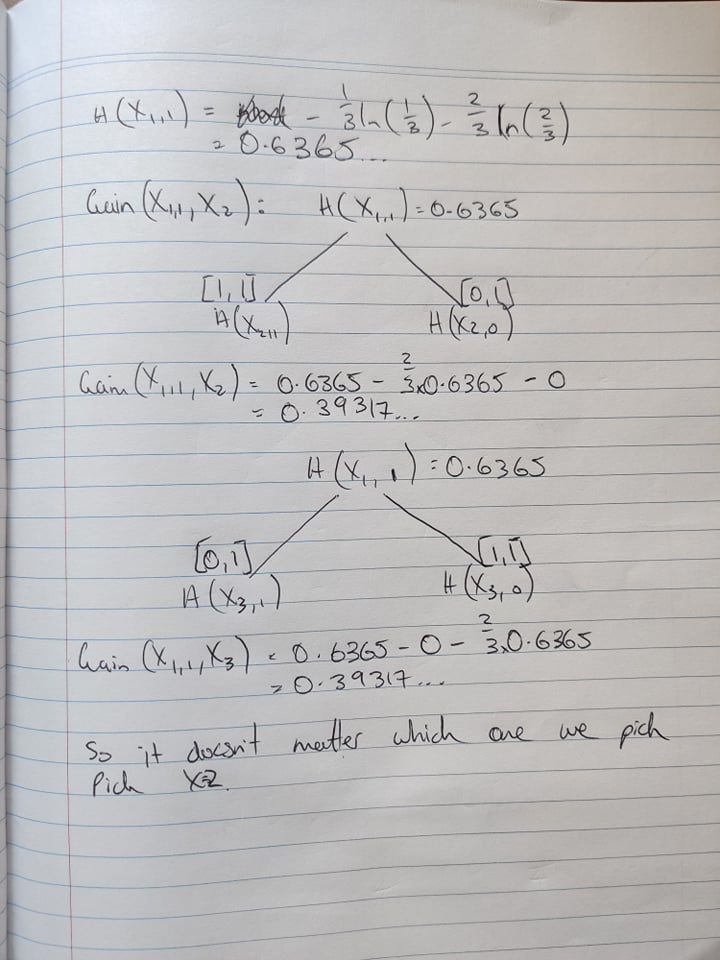 H(X₁,₁) = - 1/3 ln(1/3) - 2/3 ln(2/3)
= 0.6365...
Gain(X₁,₁, X₂): H(X₁,₁) = 0.6365
[1,1] [0,1]
H(X₂,₁) H(X₂,₀)
Gain(X₁,₁, X₂) = 0.6365 - 2/3 x 0.6365 - 0
= 0.39317...
H(X₁,₁) = 0.6365
[0,1] [1,1]
H(X₃,₁) H(X₃,₀)
Gain(X₁,₁, X₃) = 0.6365 - 0 - 2/3 x 0.6365
= 0.39317...
So it doesn't matter which one we pick
Pick X2.